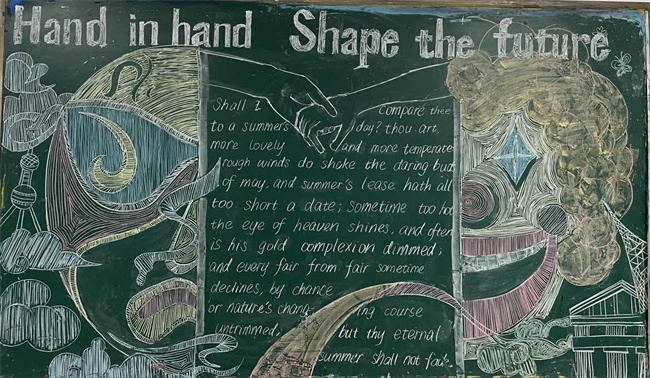 Hand in hand Shape the future
Shall I compare thee
to a summers day? thou art
more lovely and more temperate
rough winds do shake the daring bud
of may, and summer's lease hath all
too short a date; sometime too hot
the eye of heaven shines, and often
is his gold complexion dimmed;
and every fair from fair sometime
declines, by chance
or nature's chang- ing course
untrimmed, but thy eternal
summer shall not fade